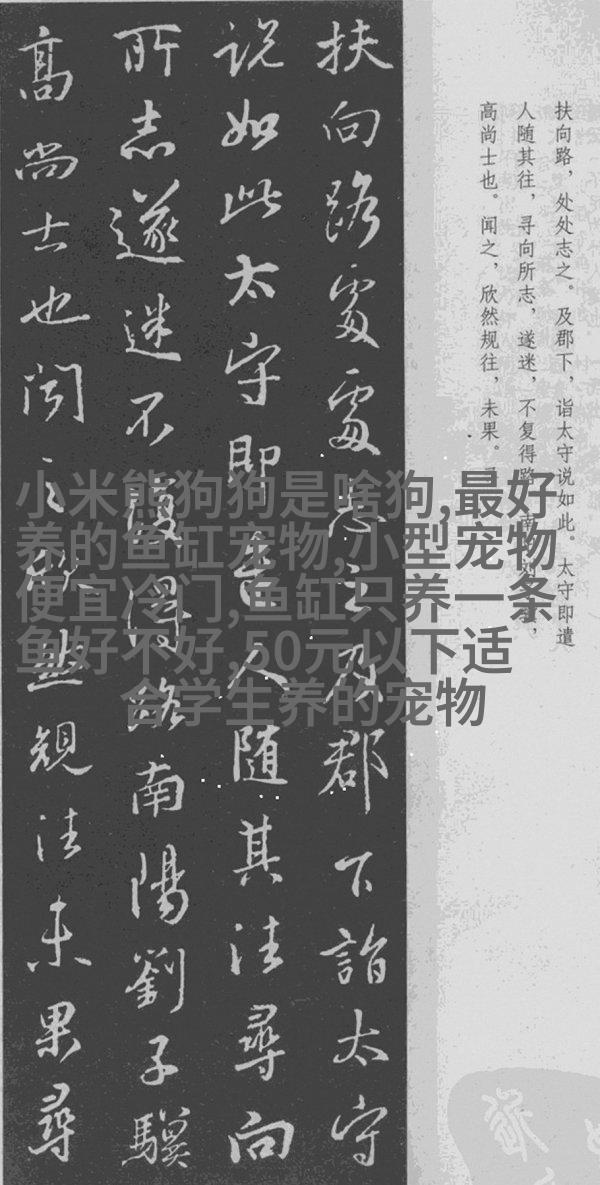 扶向路，处处志之。及郡下，诣太守说如此。太守即遣
人随其往，寻向所志，遂迷，不复得路。南阳刘子骥，
高尚士也。闻之，欣然规往，未果。寻
扶向路處處志之及郡下詣太守
説如此太守即遣人随其往尋向
所志遂迷不復得路南陽劉子驥
高尚士也聞之欣然規往未果尋
小米熊狗狗是啥狗,最好
养的鱼缸宠物,小型宠物
便宜冷门,鱼缸只养一条
鱼好不好,50元以下适
合学生养的宠物